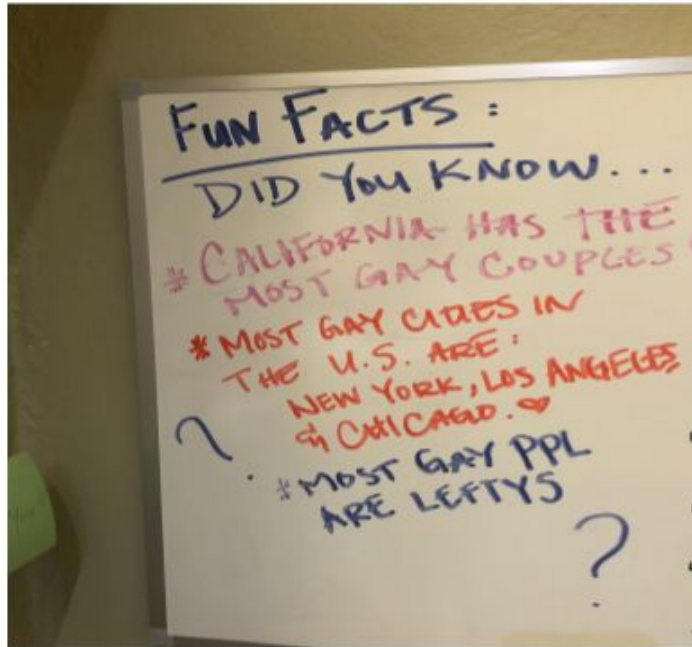 FUN FACTS:
DID YOU KNOW...
* CALIFORNIA HAS THE
MOST GAY COUPLES
* MOST GAY CITIES IN
THE U.S. ARE:
NEW YORK, LOS ANGELES
& CHICAGO. ♥
?
* MOST GAY PPL
ARE LEFTYS
?